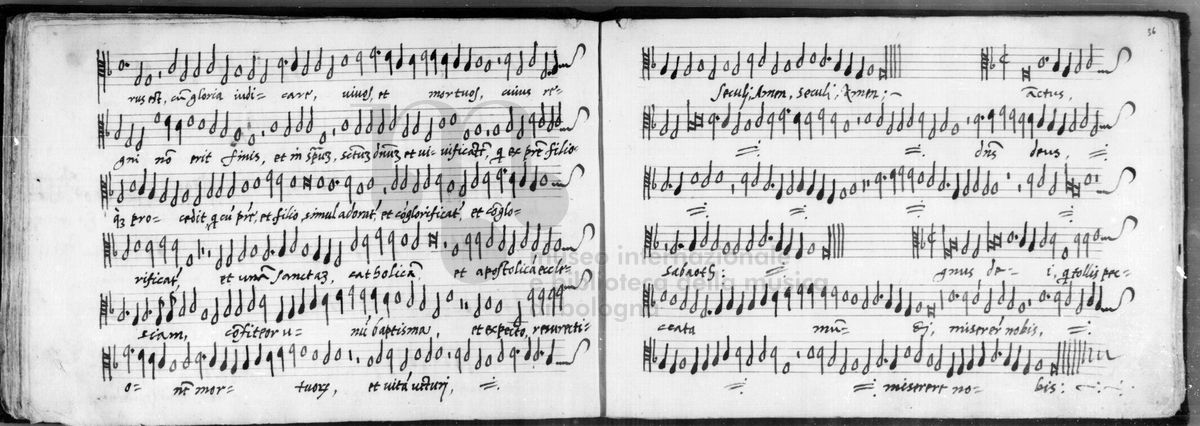 rus est, cũ gloria iudi- care, vivos, et mortuos, cuius re-
gni nõ erit finis, et in spũ, sctũ dnũ et vivificatẽ, q̃ ex pr̃e filio-
q̃ pro- cedit q̃ cũ pr̃e, et filio, simul adorat̃, et cõglorificat̃, et cõglo-
rificat̃, et unã sanctaz, catholicã et apostolicã eccle-
siam, cõfiteor u- nũ baptisma, et expecto, resurecti-
o- nẽ mor- tuoꝝ, et vitã venturi,
36
seculi, Amen, seculi, Amen;
actus,
dñs deus,
sabaoth:
gnus de- i, q̃ tollis pec-
ccata mũ- di, miserer̃ nobis,
miserere no- bis:
museo internazionale
e biblioteca della musica
di bologna